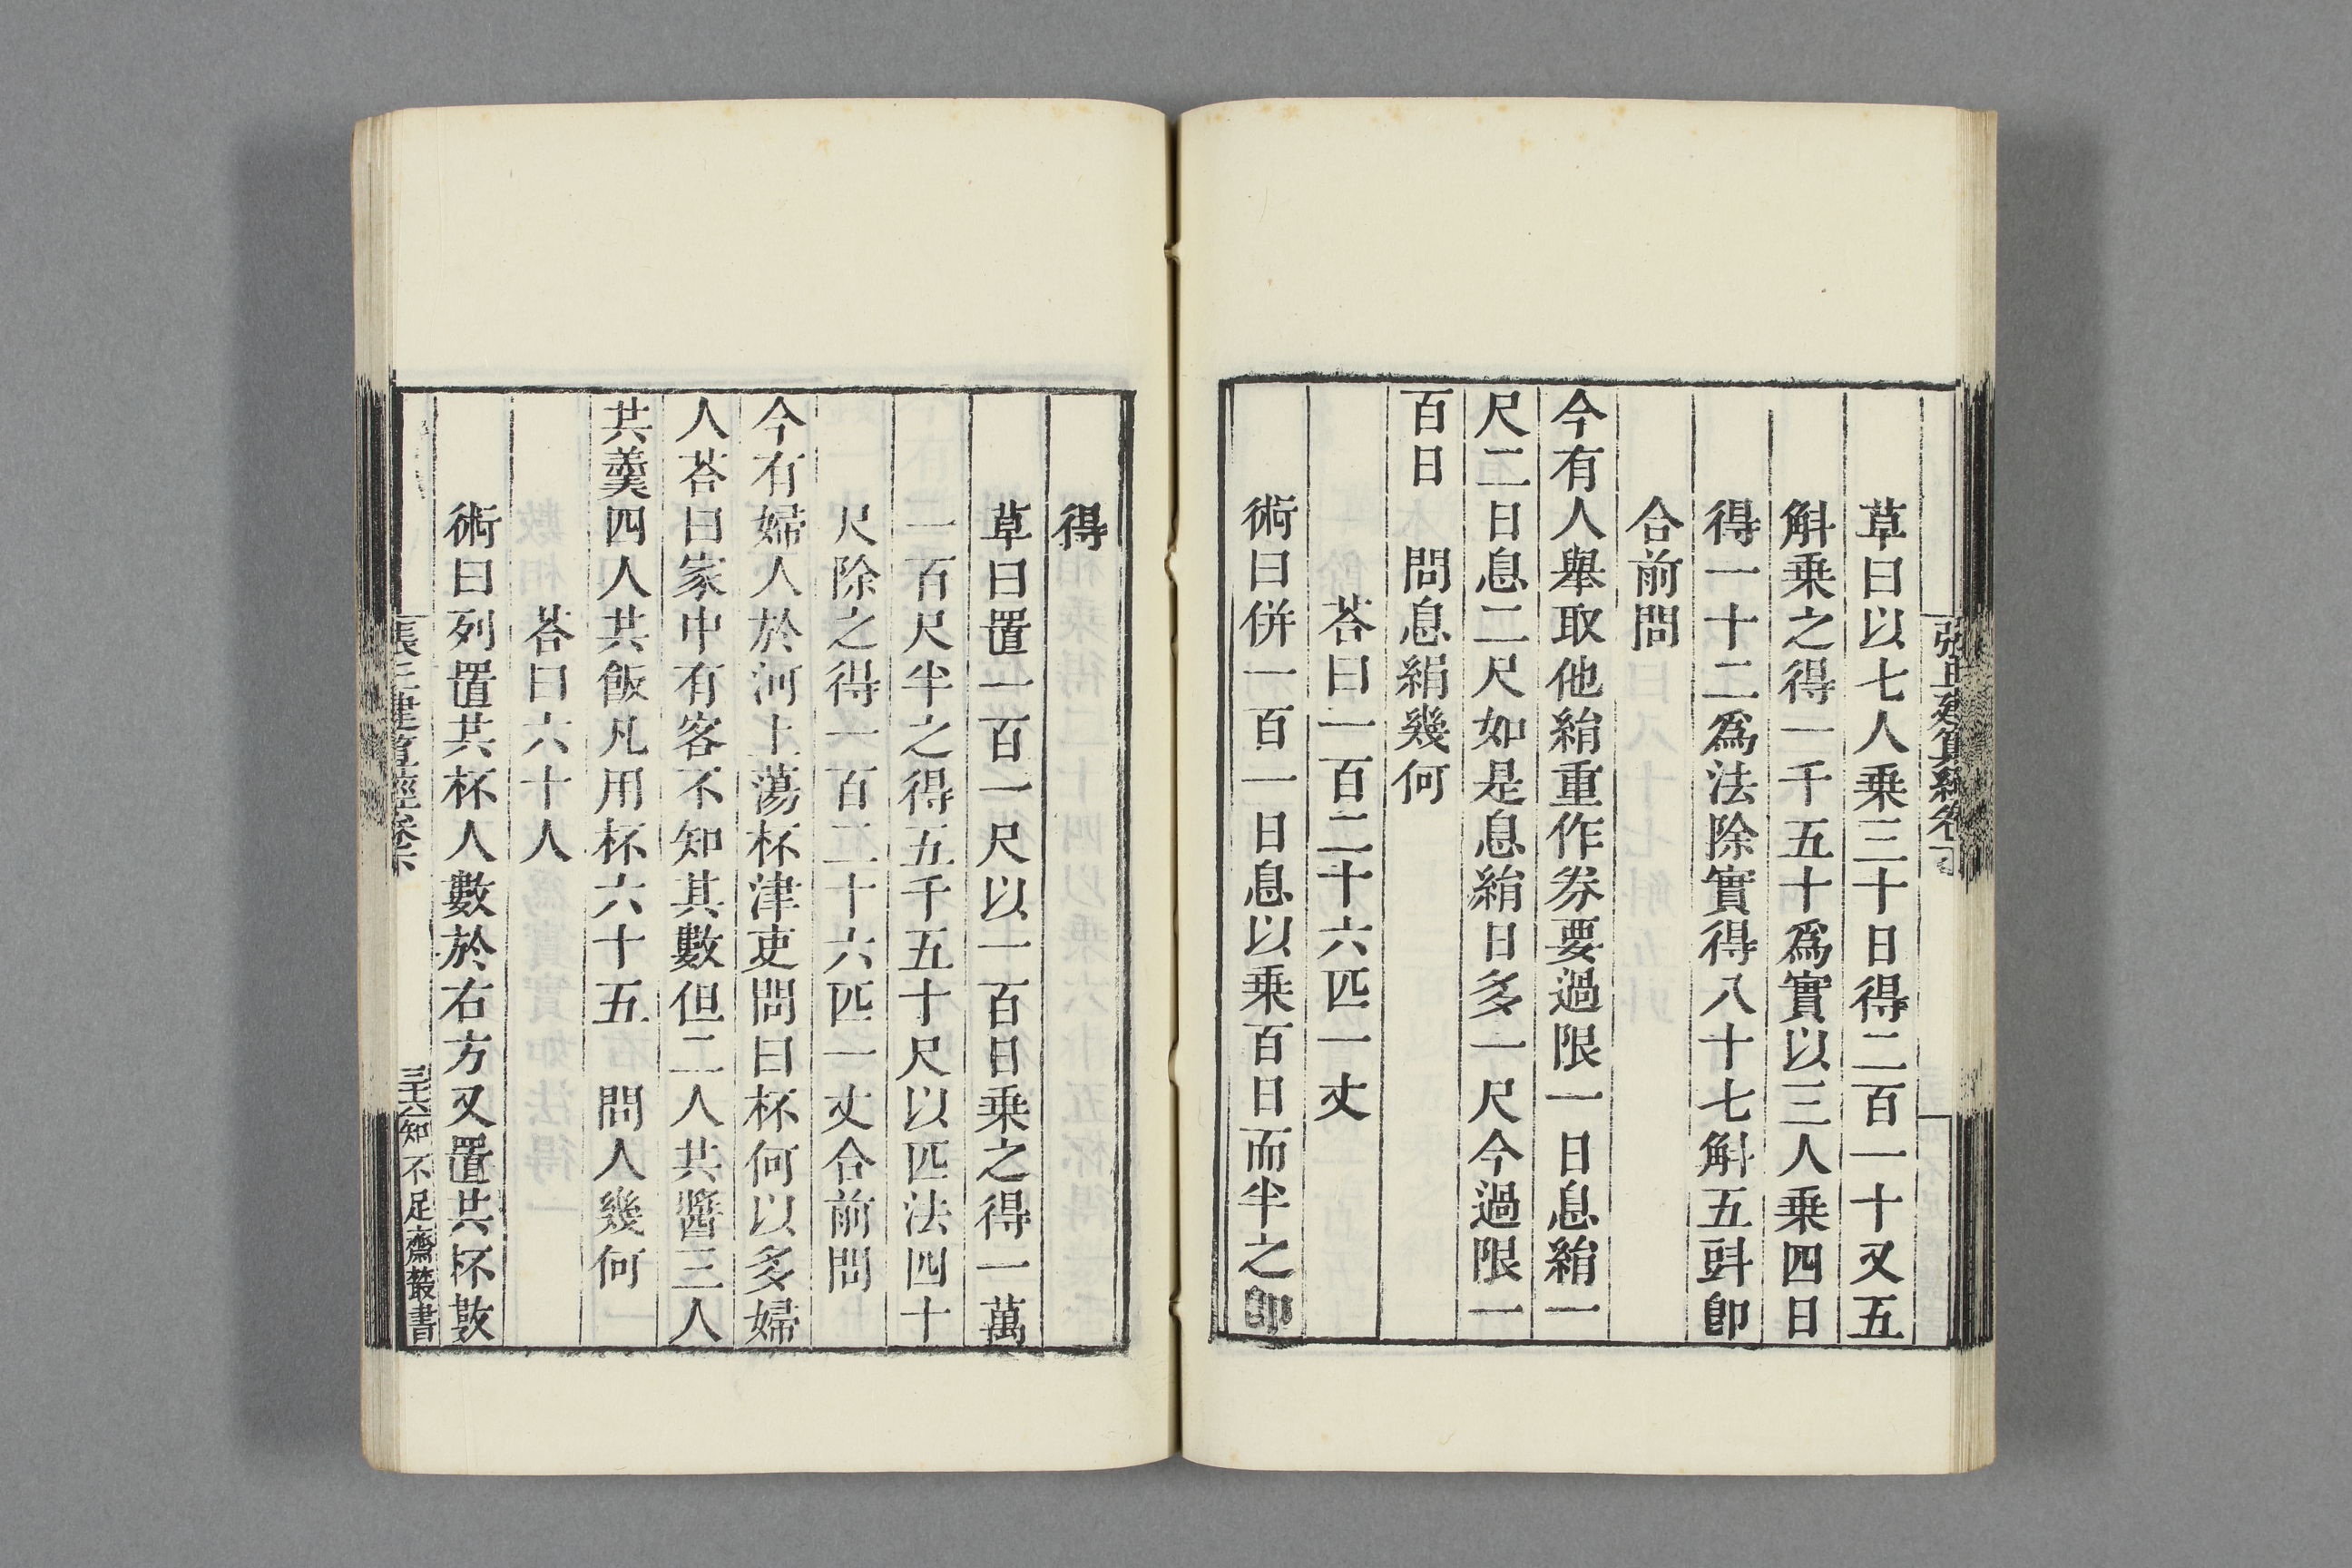 張丘建算經卷下
草曰以七人乗三十日得二百一十又五
斛乗之得一千五十爲實以三人乗四日
得一十二爲法除實得八十七斛五㪷卽
合前問
今有人舉取他絹重作券要過限一日息絹一
尺二日息二尺如是息絹日多一尺今過限一
百日　問息絹幾何
荅曰一百二十六匹一丈
術曰併一百一日息以乗百日而半之卽
得
草曰置一百一尺以一百日乗之得一萬
一百尺半之得五千五十尺以匹法四十
尺除之得一百二十六匹一丈合前問
今有婦人於河上蕩杯津吏問曰杯何以多婦
人荅曰家中有客不知其數但二人共醬三人
共羹四人共飯凡用杯六十五　問人幾何
荅曰六十人
術曰列置共杯人數於右方又置共杯數
張丘建算經卷下
三十六
知不足齋叢書